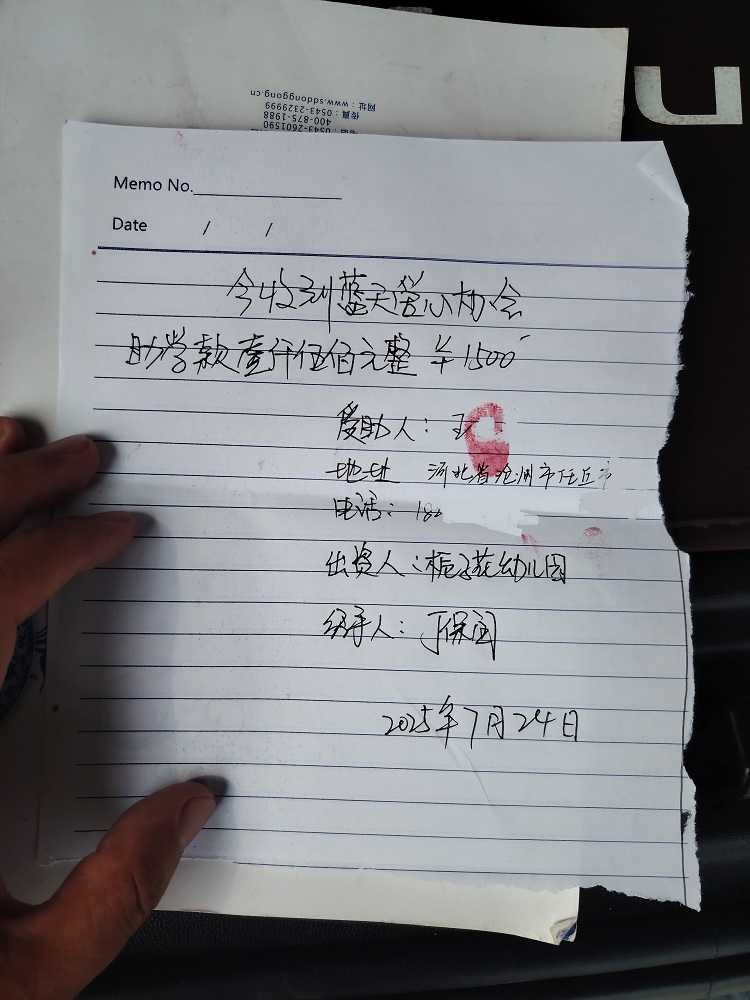 网址：www.sddonggong.cn
传真：0543-2329999
400-875-1988
电话：0543-2601590
Memo No.
Date / /
今收到蓝天爱心协会
助学款壹仟伍佰元整 ¥1500
受助人：王
地址 河北省沧州市任丘市
电话：18
出资人：栀子花幼儿园
经手人：丁保国
2025年7月24日